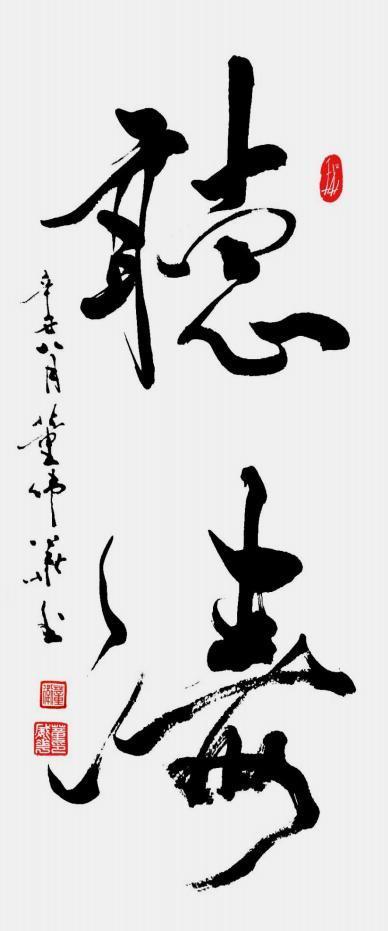 聽濤
辛丑八月董伟華书